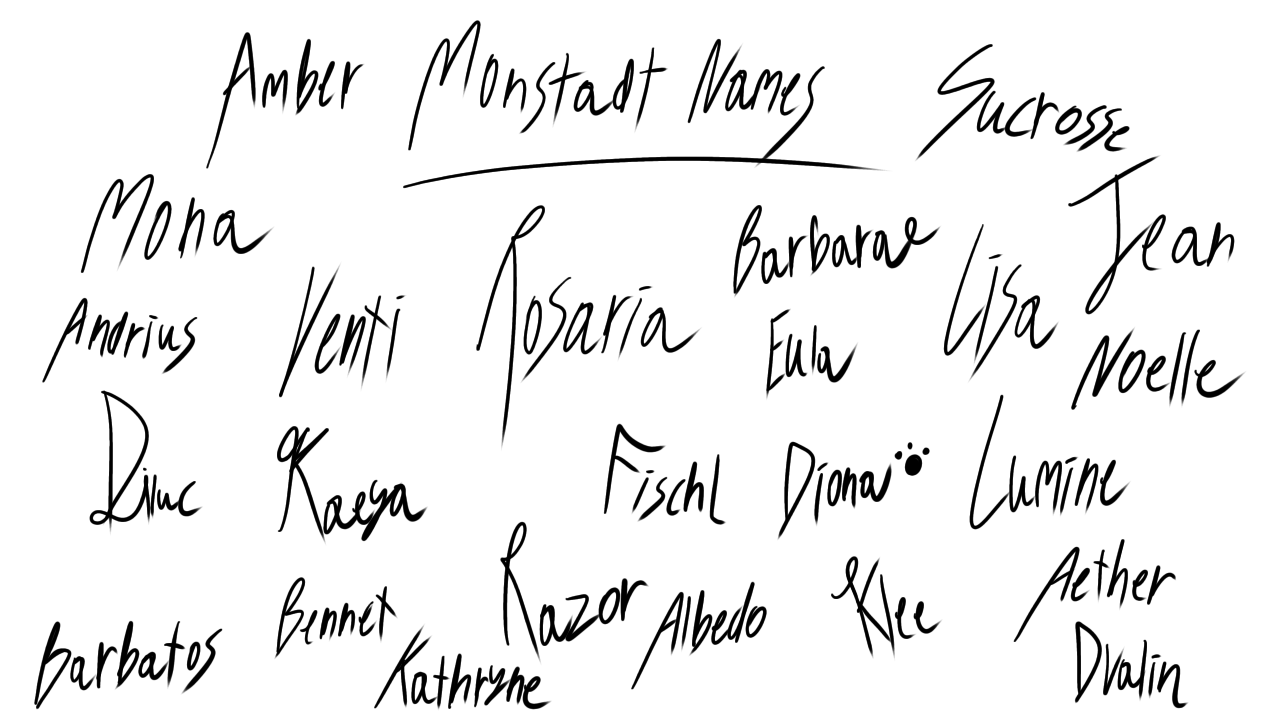 Amber Monstadt Names Sucrosse
Mona Rosaria Barbara Lisa Jean
Andrius Venti Eula Noelle
Diluc Kaeya Fischl Diona Lumine
Bennet Razor Albedo Klee Aether
Barbatos Kathryne Dvalin